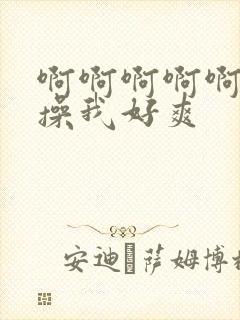 啊啊啊啊啊
操我好爽
安迪 萨姆博